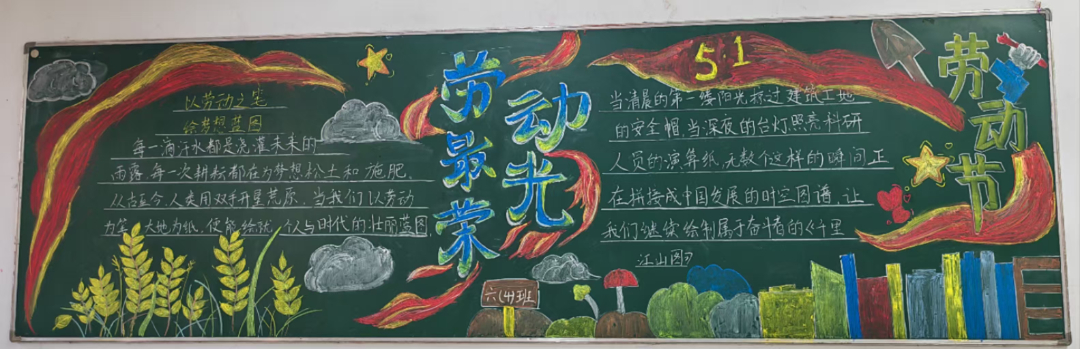 以劳动之笔
绘梦想蓝图
每一滴汗水都是浇灌未来的
雨露,每一次耕耘都在为梦想松土和施肥。
从古至今,人类用双手开垦荒原,当我们以劳动
为笔,大地为纸,便能绘就一个人与时代的壮丽蓝图
劳动
最光
荣
六(4)班
51
劳动节
当清晨的第一缕阳光掠过建筑工地
的安全帽,当深夜的台灯照亮科研
人员的演算纸,无数个这样的瞬间正
在拼接成中国发展的时空图谱,让
我们继续绘制属于奋斗者的《千里
江山图》